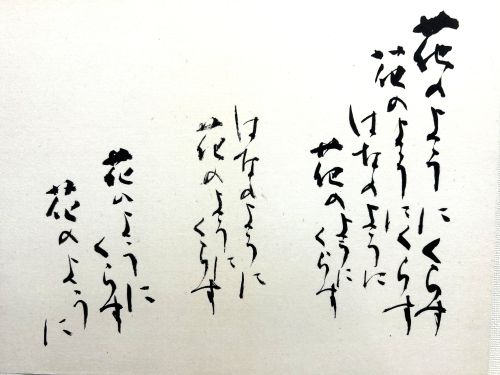 花のようにくらす
花のようにくらす
はなのように
花のように
くらす
はなのように
花のように
くらす
花のように
くらす
花のように